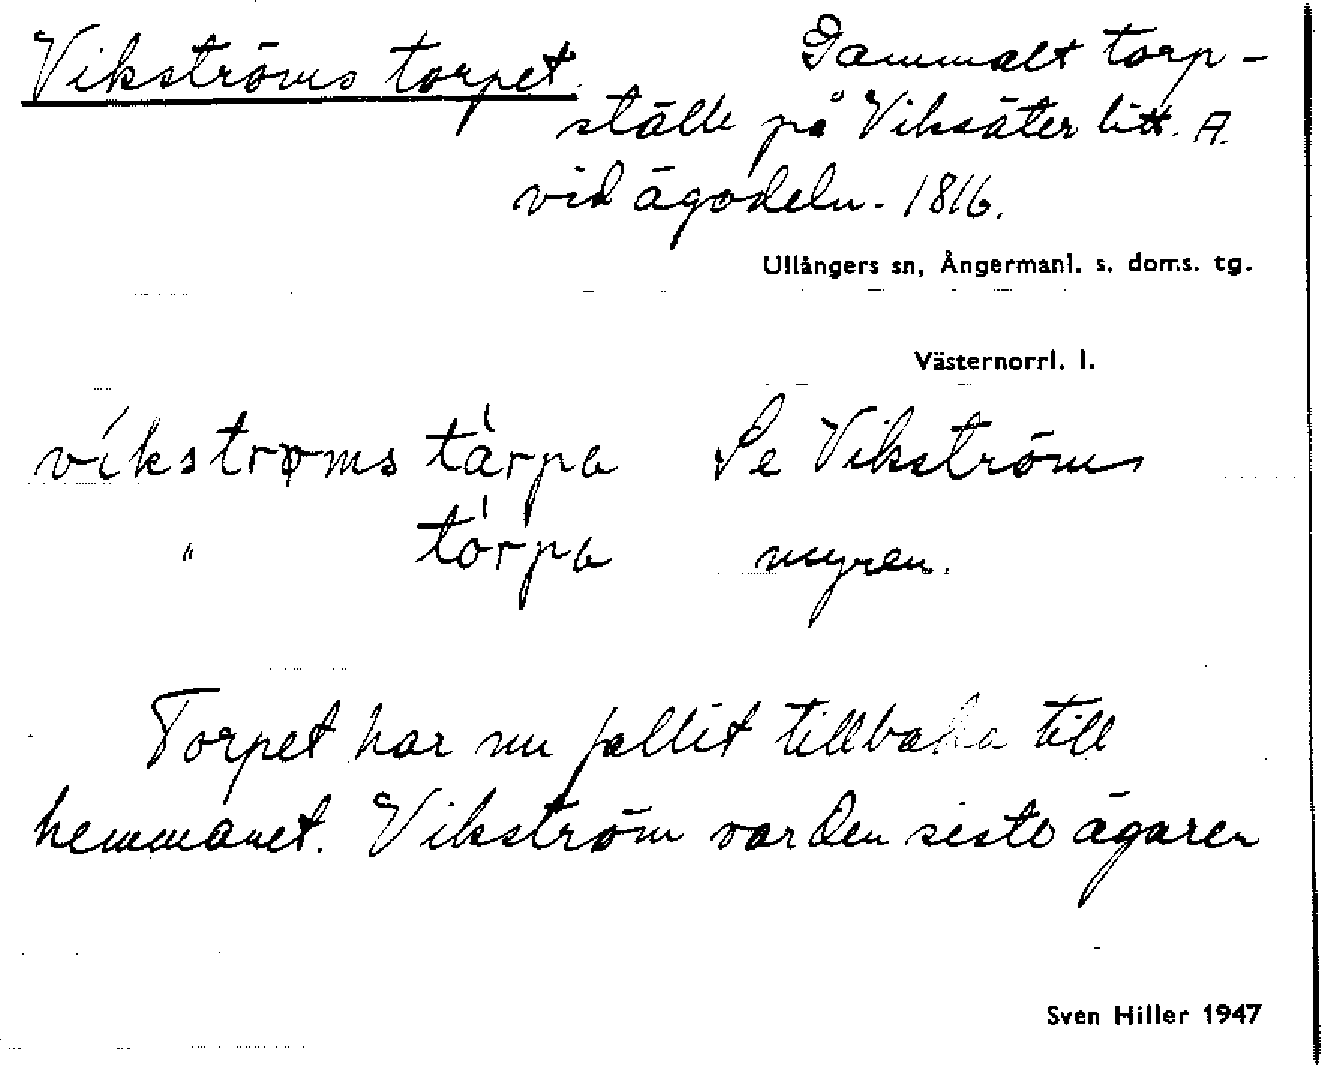 Vikströms torpet. Gammalt torp-
ställe på Viksäter litt. A.
vid ägodeln. 1816.
Ullångers sn, Ångermanl. s. doms. tg.
Västernorrl. l.
víkstrøms tàrpa Se Vikströms
" tòrpa myren.
Torpet har nu fallit tillbaka till
hemmanet. Vikström var den siste ägaren
Sven Hiller 1947